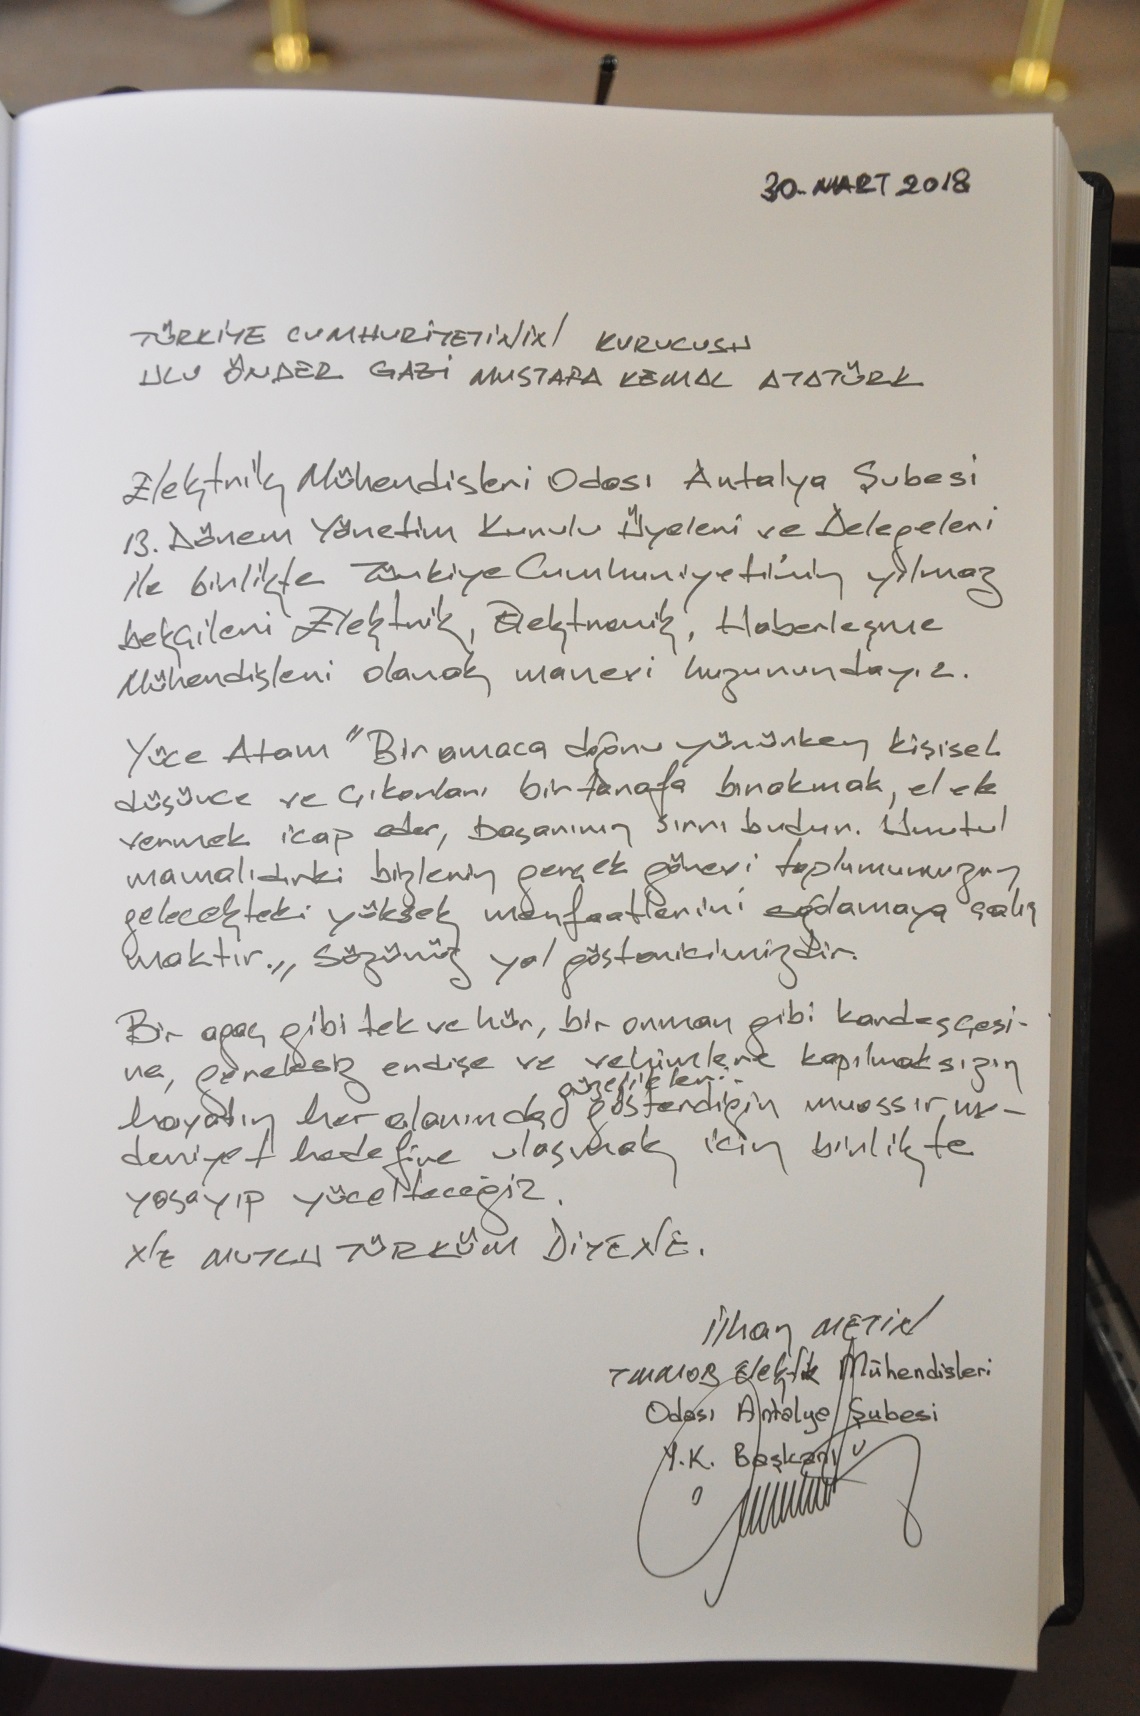 30 MART 2018
TÜRKİYE CUMHURİYETİNİN KURUCUSU
ULU ÖNDER GAZİ MUSTAFA KEMAL ATATÜRK
Elektrik Mühendisleri Odası Antalya Şubesi
13. Dönem Yönetim Kurulu Üyeleri ve Delegeleri
ile birlikte Türkiye Cumhuriyeti'nin yılmaz
bekçileri Elektrik, Elektronik, Haberleşme
Mühendisleri olarak manevi huzurundayız.
Yüce Atam "Bir amaca doğru yürürken kişisel
düşünce ve çıkarları bir tarafa bırakmak, el ele
vermek icap eder, başarının sırrı budur. Unutul
mamalıdırki bizlerin gerçek görevi toplumumuzun
gelecekteki yüksek menfaatlerini sağlamaya çalış
maktır.,, sözünüz yol göstericimizdir.
Bir ağaç gibi tek ve hür, bir orman gibi kardeşçesi-
ne, gereksiz endişe ve vehimlere kapılmaksızın
hayatın her alanında gösterdiğin muassır me-
deniyet hedefine ulaşmak için birlikte
yaşayıp yücelteceğiz.
NE MUTLU TÜRKÜM DİYENE.
İlhan METİN
TMMOB Elektrik Mühendisleri
Odası Antalya Şubesi
Y.K. Başkanı